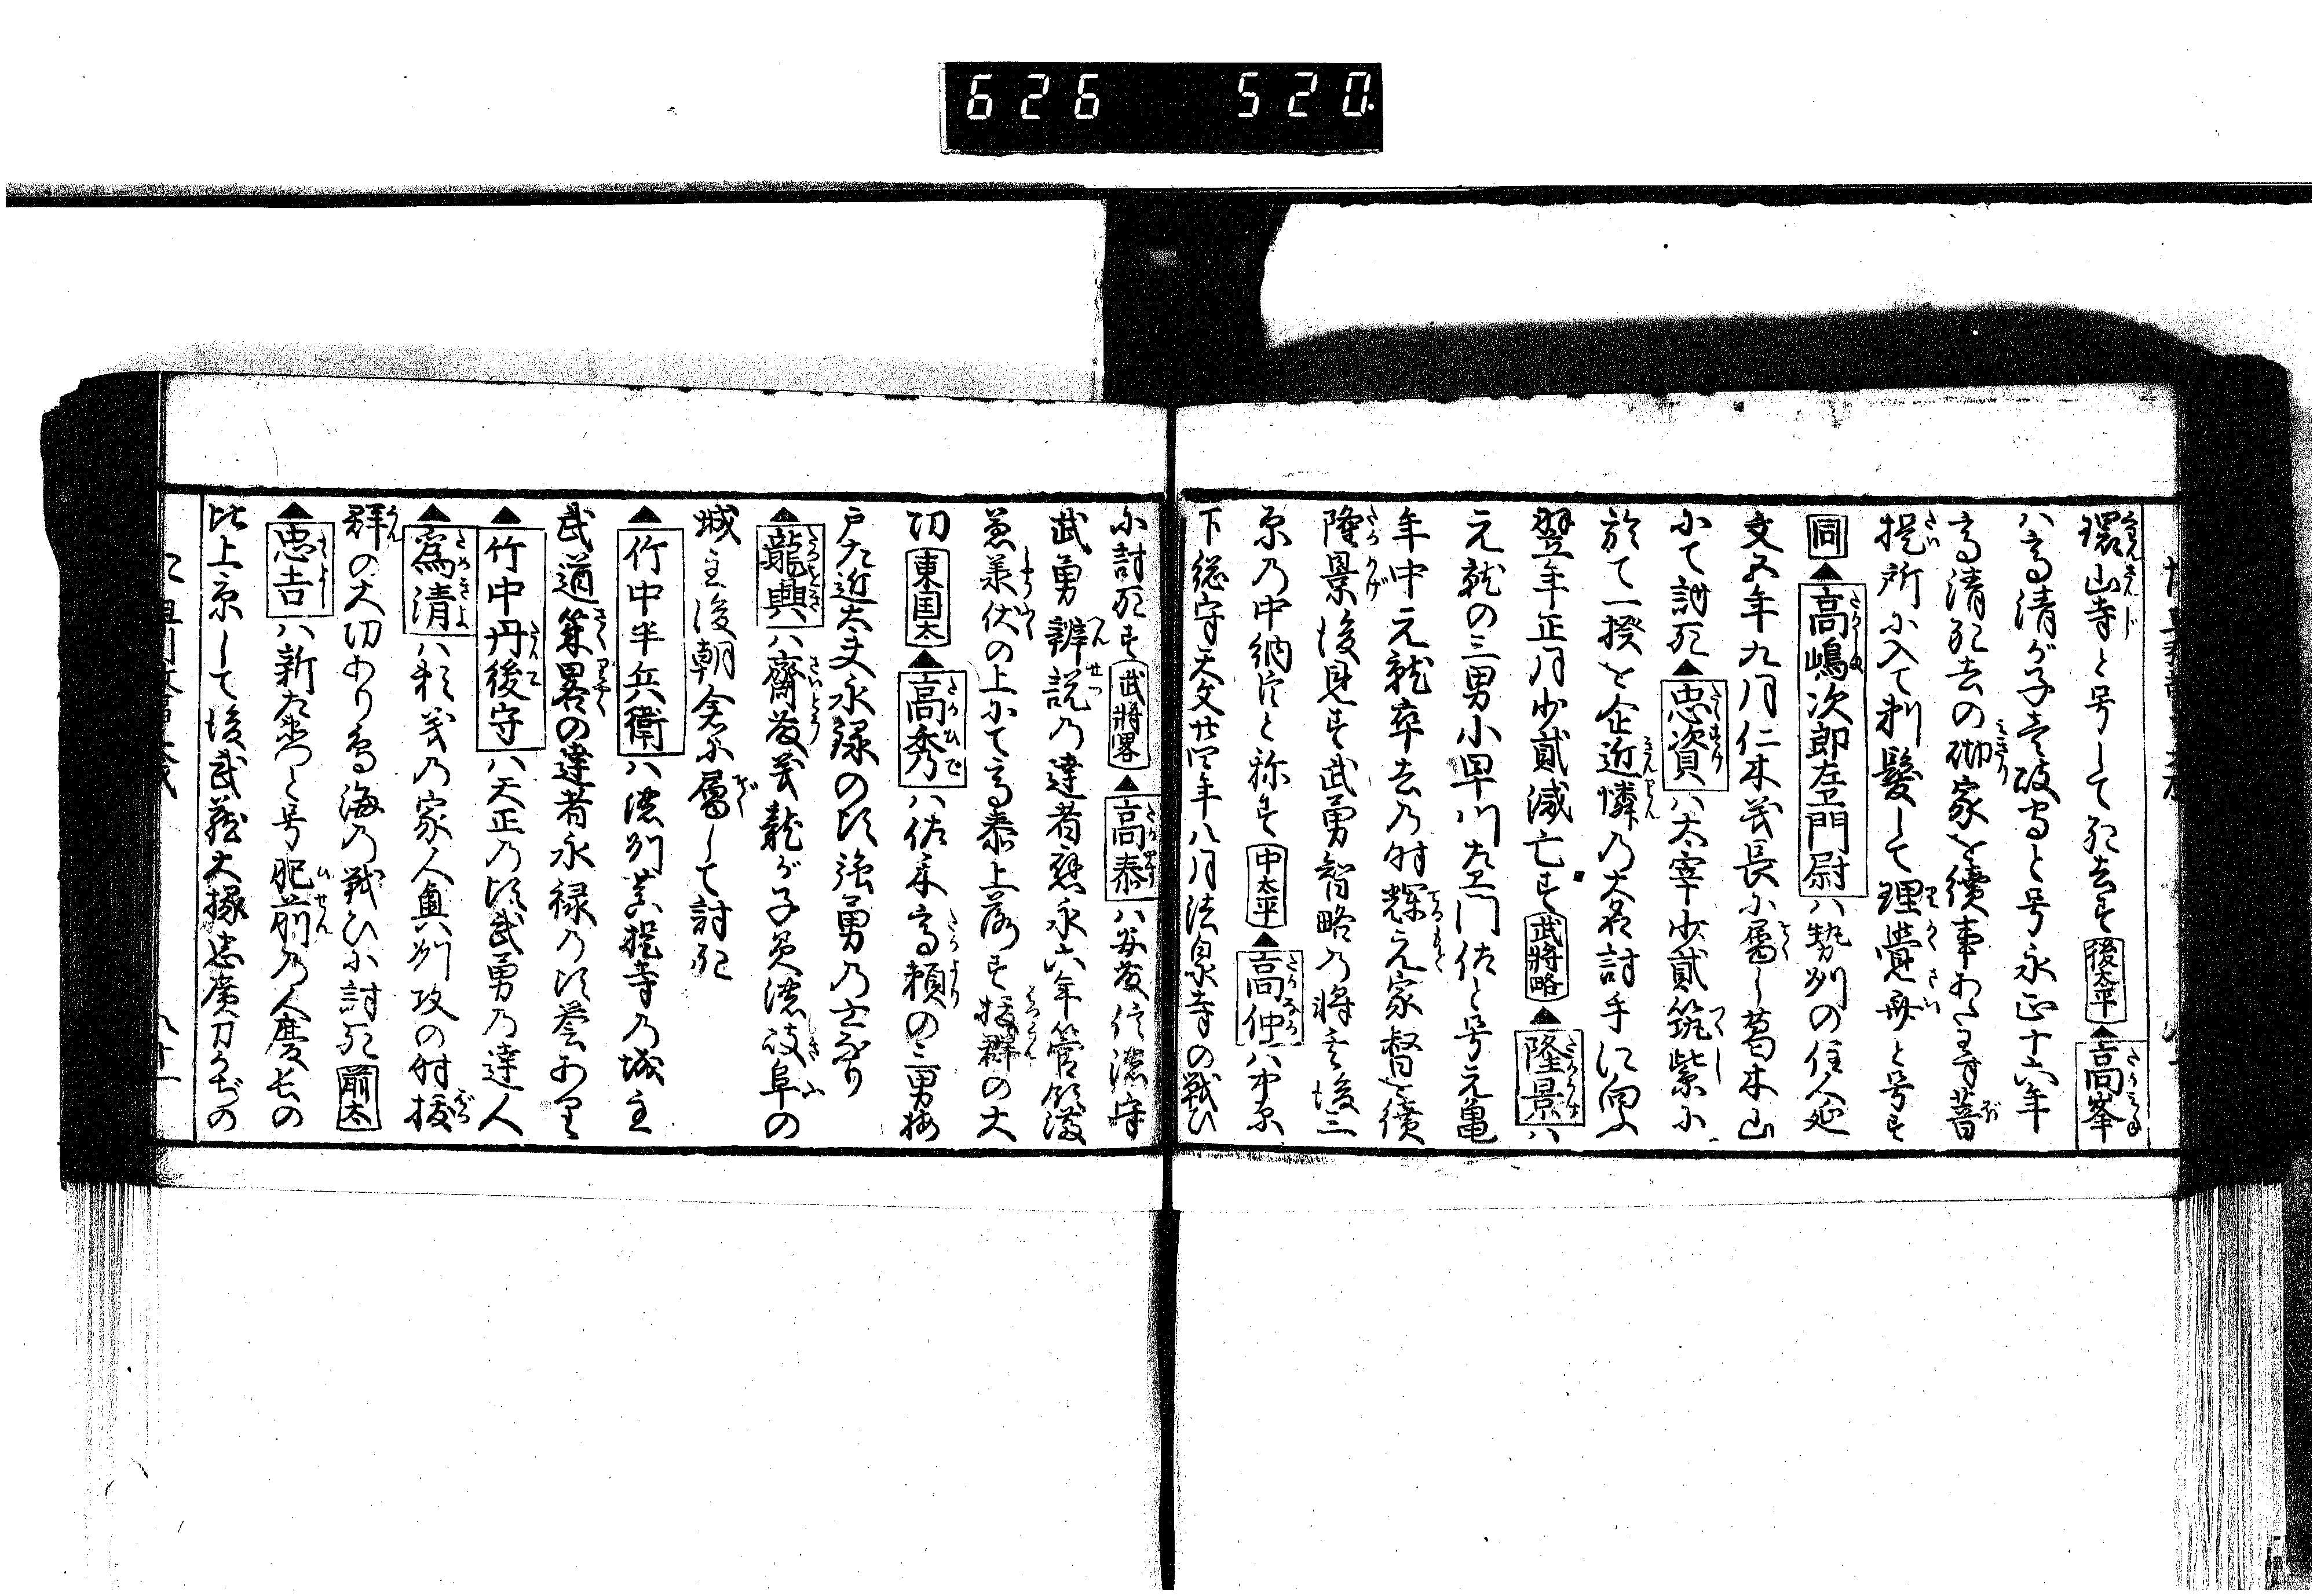 626 520
環山寺と号して死去す 後太平 ▲高峯
ハ高清が子壱岐守と号永正十六年
高清死去の砌家を續事あたハず菩
提所に入て剃髪して理覺斎と号す
同 ▲高嶋次郎左エ門尉 ハ勢州の住人延
文五年九月仁木義長に属し葛木山
にて討死 ▲忠資 ハ太宰少貳筑紫に
於て一揆を企近憐の大名討手に向ふ
翌年正月少貳滅亡す 武將略 ▲隆景 ハ
元就の三男小早川左エ門佐と号元亀
年中元就卒去の时輝元家督を續
隆景後見す武勇智略の将なり後三
原の中納言と称す 中太平 ▲高仲 ハ中原
下総守天文廿四年八月法泉寺の戦ひ
に討死す 武將畧 ▲高泰 ハ安藤信濃守
武勇辨説の達者應永六年管領満
兼義伏の上にて高泰上落す抜群の大
功 東国太 ▲高秀 ハ佐々木高頼の三男梅
戸左近太夫永禄の頃強勇の士なり
▲龍興 ハ齋藤義龍が子美濃岐阜の
城主後朝倉に属して討死
▲竹中半兵衛 ハ濃州菩提寺の城主
武道策畧の達者永禄の頃誉あり
▲竹中丹後守 ハ天正の頃武勇の達人
▲為清 ハ頼義の家人奥州攻の时抜
群の大功あり鳥海の戦ひに討死 前太
▲忠吉 ハ新左衛門と号肥前の人慶長の
比上京して後武蔵大掾忠廣刀かぢの